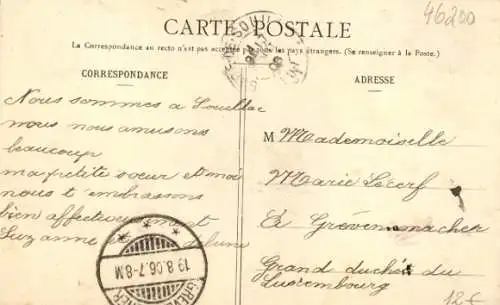 46200
CARTE POSTALE
La Correspondance au recto n'est pas acceptée par tous les pays étrangers. (Se renseigner à la Poste.)
CORRESPONDANCE
Nous sommes a Souillac
nous nous amusons
beaucoup
ma petite soeur et moi
nous t'embrassons
bien affectueusement
Suzanne
19.8.06.7-8N
ADRESSE
M Mademoiselle
Marie Lecerf
à Grévenmacher
Grand duché du
Luxembourg
12€